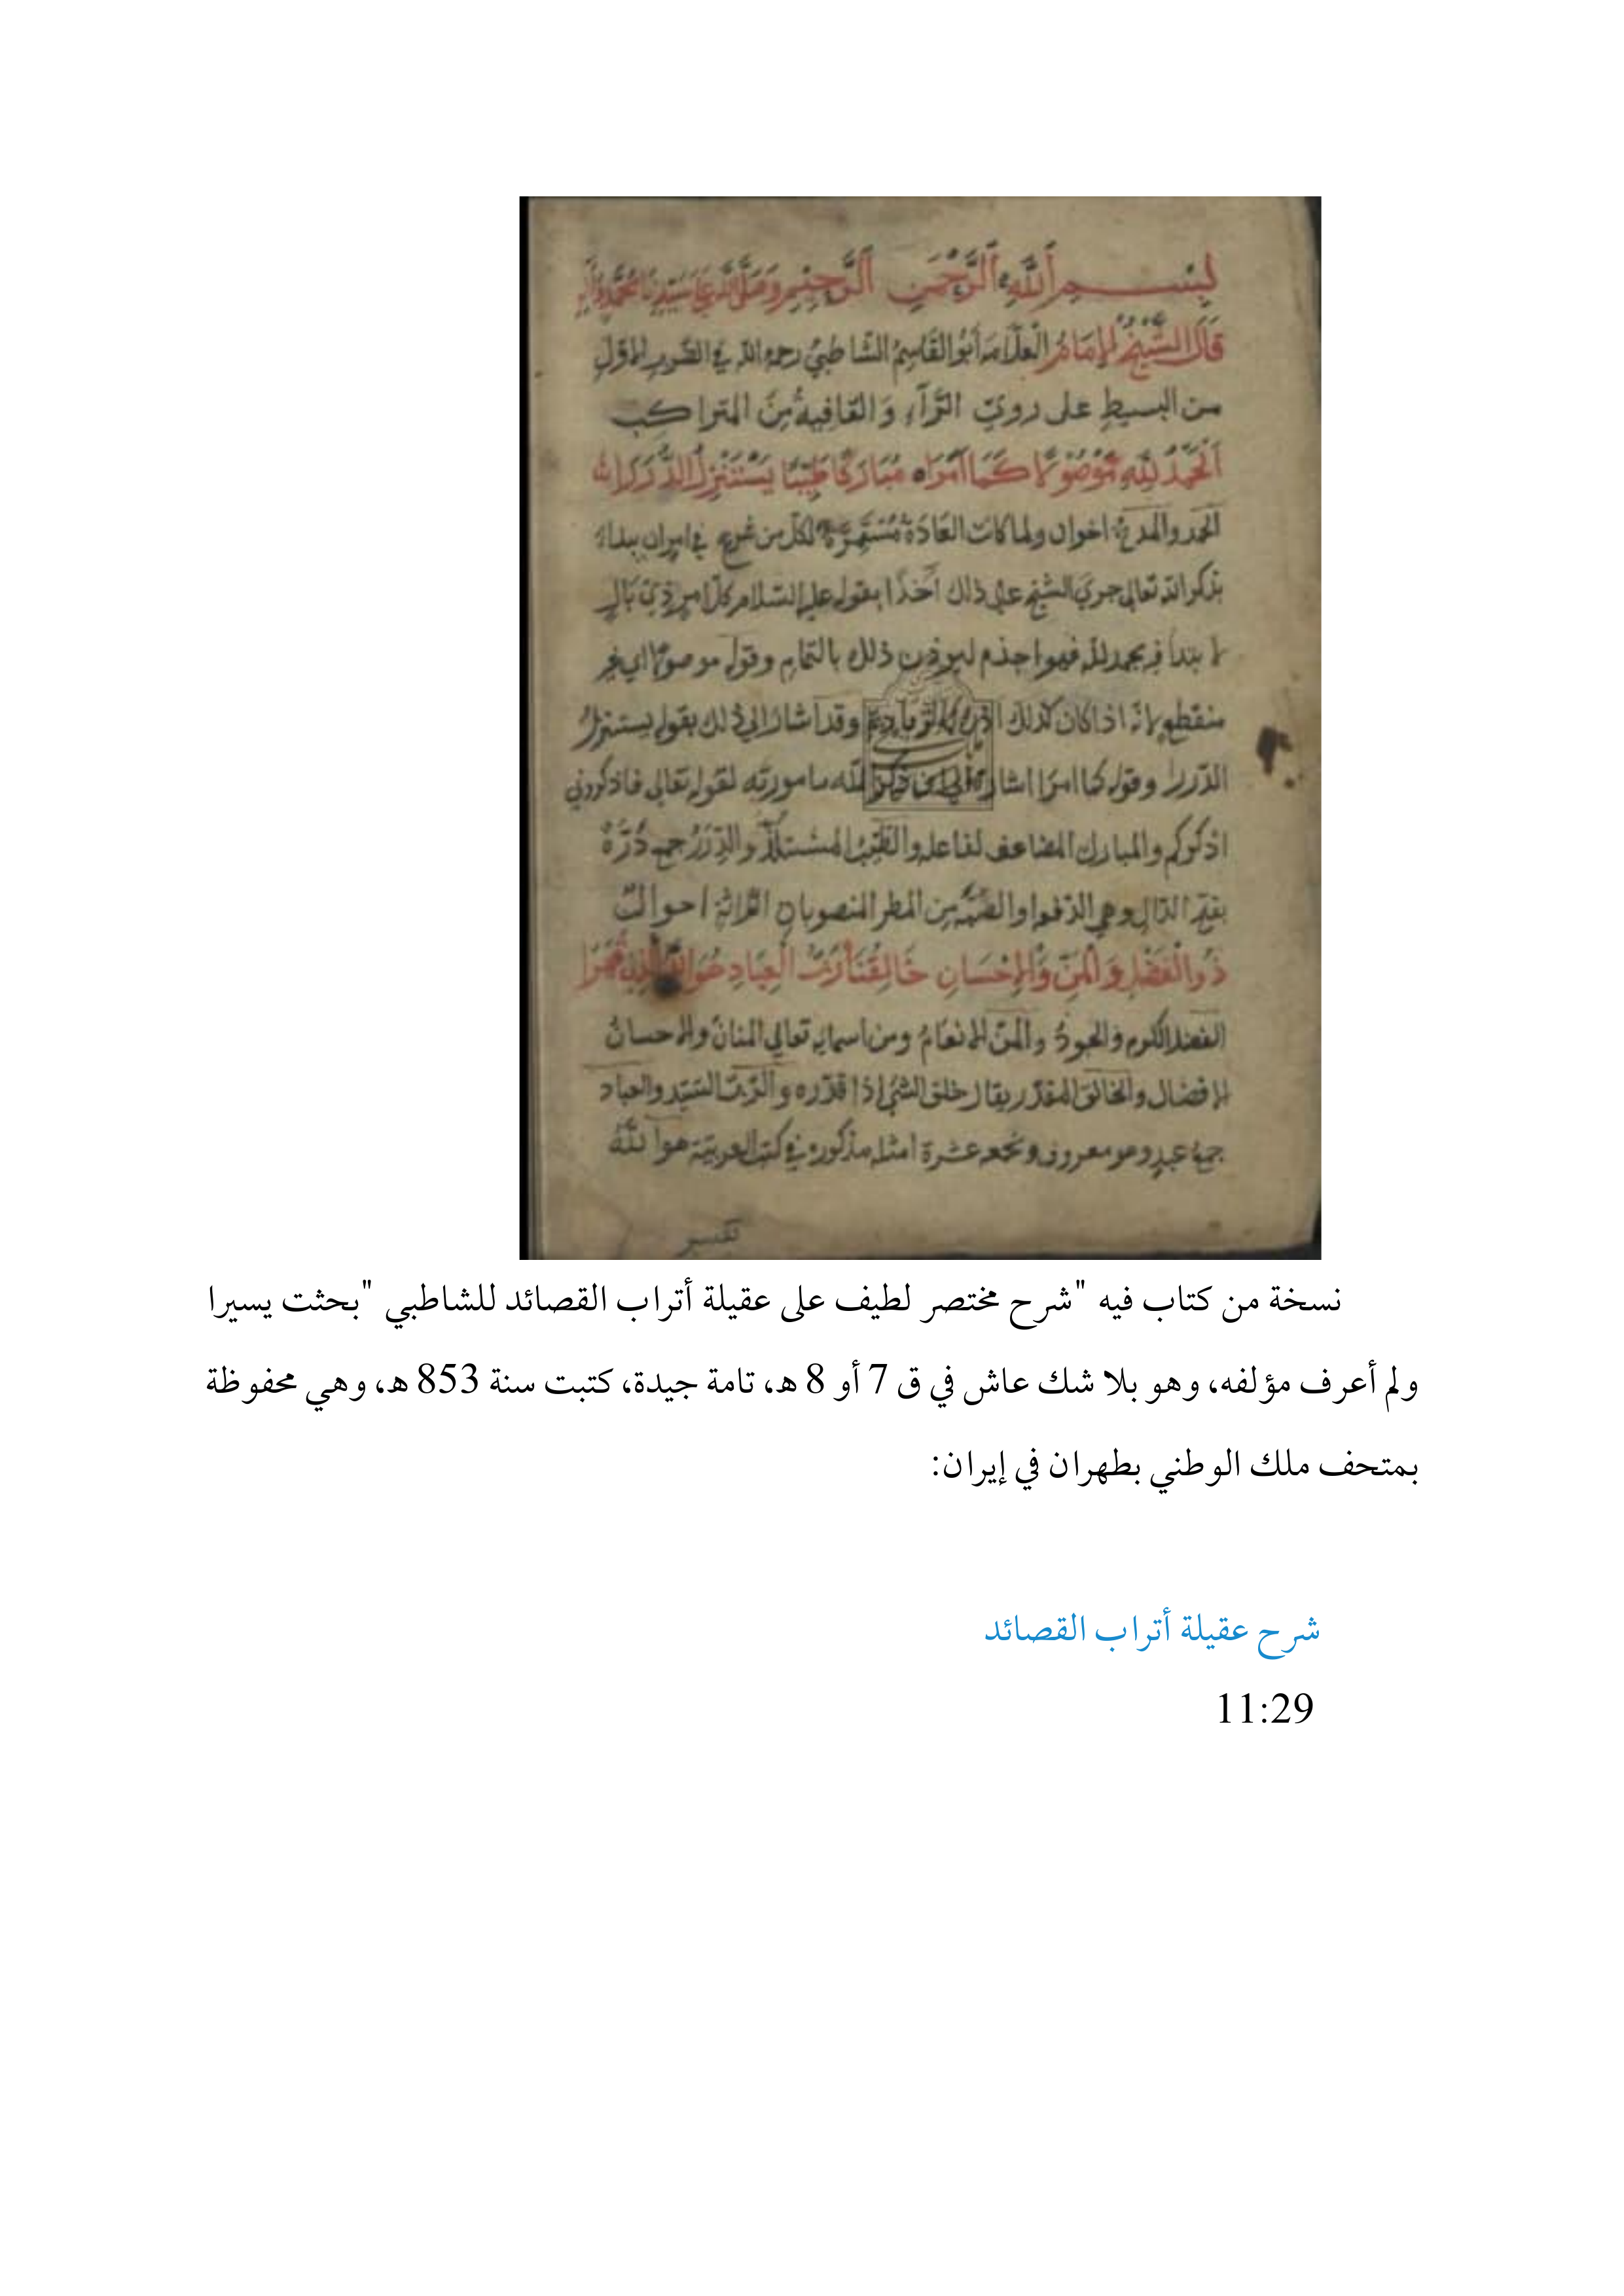 بسم الله الرحمن الرحيم وصلى الله على سيدنا محمد وآله
قَالَ الشَّيْخُ الإمَامُ العلّامَة أبُو القَاسِمُ الشّاطبيُ رحمه الله في الضرب الاول
من البسيطِ على رويّ الرَّآءِ وَالقافيةُ مِنَ المتراكب
اَلْحَمْدُ لِلّهِ مَوْصُولًا كَمَا أَمَرَا مُبَارَكًا طَيِّبًا يَسْتَنْزِلُ الدِّرَرَا
الحمد والمدح اخوان ولما كانت العَادَةُ مُسْتَمِرَّةً لكل من شرع في امر ان يبدأ
بذكر الله تعالى جرى الشيخ على ذلك آخذًا بقوله عليه السلام كل امرٍ ذي بَالٍ
لا يبدأ فيه بحمد لله فهو اجذم ليوذن ذلك بالتمام وقوله موصولا اي غير
منقطع لانه اذا كان كذلك وقد اشار الى ذلك بقوله يستنزلُ
الدّررا وقوله كما امرا اشارة الى ان ذكر الله مامور به لقوله تعالى فاذكروني
اذكركم والمبارك المضاعف لفاعله والطّيبُ المستلذّ والدِّرَرُ جمع دُرَّةٌ
الدّال وهي من المطر المنصوبات الثلاثة احوالٌ
ذُو الْفَضْلِ وَالْمَنِّ وَالْإِحْسَانِ خَالِقُنَا رَبُّ الْعِبَادِ هُوَ اللهُ الَّذِي قَهَرَا
الفضل الكرم والجودُ والمنّ الانعامُ ومن اسمايه تعالى المنانُ والاحسانُ
الافضال والخالق المقدّر يقال خلق الشئ اذا قدّره والرّبّ السّيّد والعباد
جمع عبدٍ وهو معروف عشرة امثلة مذكورة في كتب العربيّة هو اللهُ
تفسير
نسخة من كتاب فيه "شرح مختصر لطيف على عقيلة أتراب القصائد للشاطبي" بحثت يسيرا
ولم أعرف مؤلفه، وهو بلا شك عاش في ق 7 أو 8 هـ، تامة جيدة، كتبت سنة 853 هـ، وهي محفوظة
بمتحف ملك الوطني بطهران في إيران:
شرح عقيلة أتراب القصائد
11:29